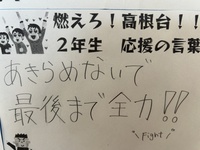 燃えろ！高根台！！
２年生　応援の言葉
あきらめないで
最後まで全力!!
\Fight/